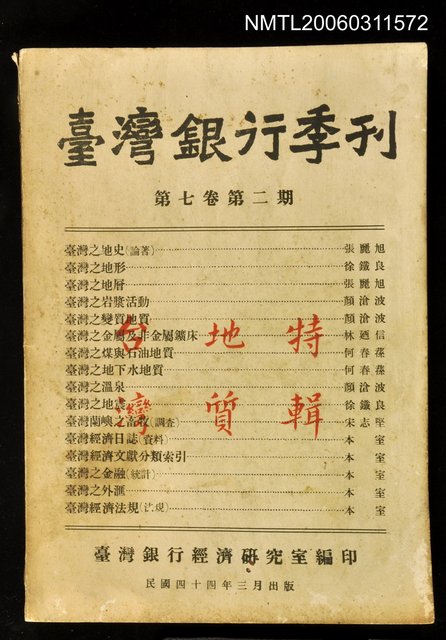 NMTL20060311572
臺灣銀行季刊
第七卷第二期
臺灣之地史(論著)……張麗旭
臺灣之地形……徐鐵良
臺灣之地層……張麗旭
臺灣之岩漿活動……顏滄波
臺灣之變質地質……顏滄波
臺灣之金屬及非金屬鑛床……林廼信
臺灣之煤與石油地質……何春蓀
臺灣之地下水地質……何春蓀
臺灣之溫泉……顏滄波
臺灣之地震……徐鐵良
臺灣蘭嶼之畜牧(調查)……宋志堅
臺灣經濟日誌(資料)……本室
臺灣經濟文獻分類索引……本室
臺灣之金融(統計)……本室
臺灣之外滙……本室
臺灣經濟法規(法規)……本室
特輯
地質
台灣
臺灣銀行經濟研究室編印
民國四十四年三月出版